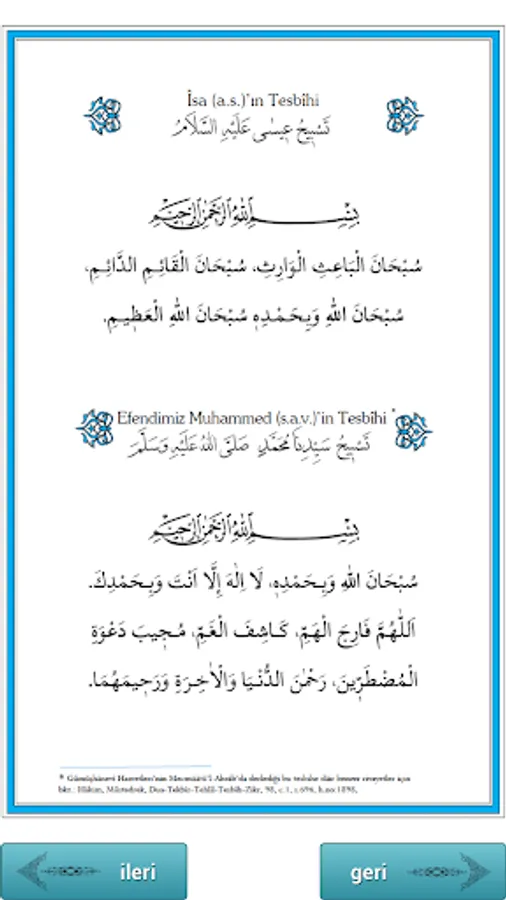 İsa (a.s.)'ın Tesbîhi
تَسْبِيحُ عِيسٰى عَلَيْهِ السَّلَامُ
بِسْمِ اللهِ الرَّحْمٰنِ الرَّحِيمِ
سُبْحَانَ الْبَاعِثِ الْوَارِثِ، سُبْحَانَ الْقَائِمِ الدَّائِمِ،
سُبْحَانَ اللهِ وَبِحَمْدِهِ سُبْحَانَ اللهِ الْعَظِيمِ.
Efendimiz Muhammed (s.a.v.)'in Tesbîhi *
تَسْبِيحُ سَيِّدِنَا مُحَمَّدٍ صَلَّى اللهُ عَلَيْهِ وَسَلَّمَ
بِسْمِ اللهِ الرَّحْمٰنِ الرَّحِيمِ
سُبْحَانَ اللهِ وَبِحَمْدِهِ، لَا اِلٰهَ إِلَّا اَنْتَ وَبِحَمْدِكَ.
اَللّٰهُمَّ فَارِجَ الْهَمِّ، كَاشِفَ الْغَمِّ، مُجِيبَ دَعْوَةِ
الْمُضْطَرِّينَ، رَحْمٰنَ الدُّنْيَا وَالْاٰخِرَةِ وَرَحِيمَهُمَا.
* Gümüşhânevî Hazretleri'nin Mecmûatü'l-Ahzâb'da derlediği bu tesbihe dâir benzer rivayetler için
bkz.: Hâkim, Müstedrek, Dua-Tekbîr-Tehlîl-Tesbîh-Zikr, 98, c.1, s.696, h.no:1898.
ileri
geri